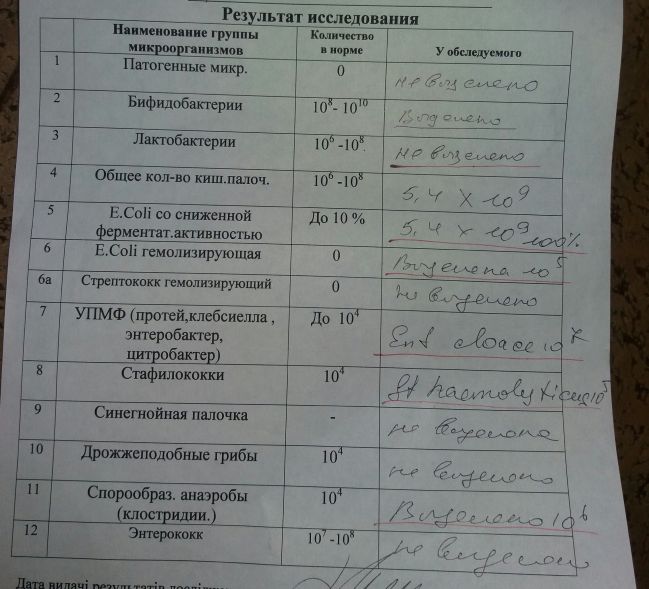 Результат исследования
Наименование группы микроорганизмов Количество в норме У обследуемого
1 Патогенные микр. 0 не выделено
2 Бифидобактерии 10⁸- 10¹⁰ Выделено
3 Лактобактерии 10⁶ -10⁸. не выделено
4 Общее кол-во киш.палоч. 10⁶ -10⁸ 5,4 х 10⁹
5 E.Coli со сниженной До 10 % 5,4 х 10⁹ 100%
ферментат.активностью
6 E.Coli гемолизирующая 0 Выделена 10⁵
6а Стрептококк гемолизирующий 0 не выделено
7 УПМФ (протей,клебсиелла , До 10⁴ Ent cloace 10⁷
энтеробактер,
цитробактер)
8 Стафилококки 10⁴ St haemolyticus 10⁵
9 Синегнойная палочка - не выделена
10 Дрожжеподобные грибы 10⁴ не выделено
11 Спорообраз. анаэробы 10⁴ Выделено 10⁶
(клостридии.)
12 Энтерококк 10⁷ -10⁸ не выделен
Дата видачі результатів